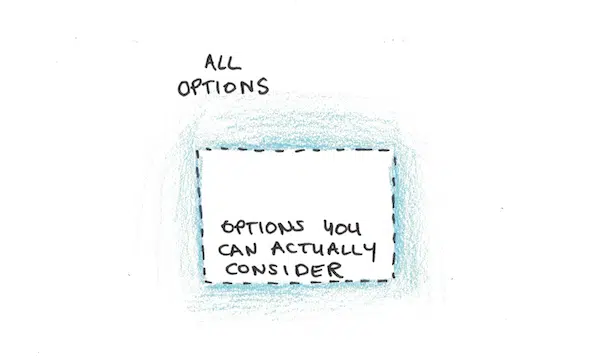 ALL
OPTIONS
OPTIONS YOU
CAN ACTUALLY
CONSIDER